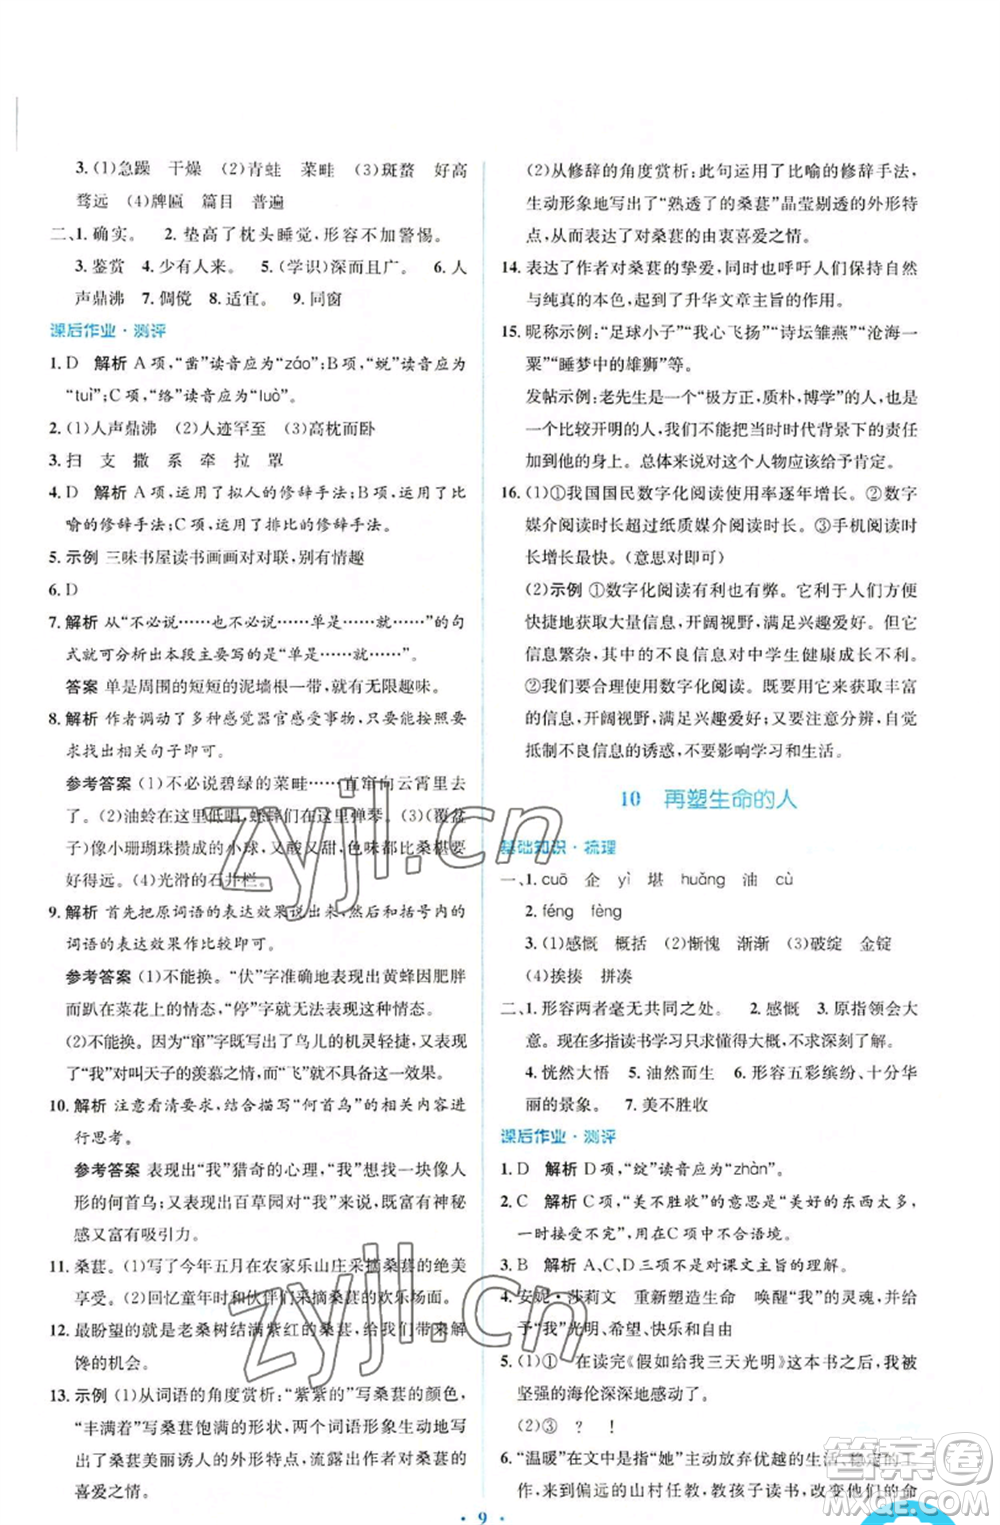 3. (1)急躁 干燥 (2)青蛙 菜畦 (3)斑蝥 好高
骛远 (4)牌匾 篇目 普遍
二、1. 确实。 2. 垫高了枕头睡觉，形容不加警惕。
3. 鉴赏 4. 少有人来。 5. (学识)深而且广。 6. 人
声鼎沸 7. 倜傥 8. 适宜。 9. 同窗
课后作业·测评
1. D 解析 A项，“凿”读音应为“záo”；B项，“蜕”读音应为
“tuì”；C项，“络”读音应为“luò”。
2. (1)人声鼎沸 (2)人迹罕至 (3)高枕而卧
3. 扫 支 撒 系 牵 拉 罩
4. D 解析 A项，运用了拟人的修辞手法；B项，运用了比
喻的修辞手法；C项，运用了排比的修辞手法。
5. 示例 三味书屋读书画画对对联，别有情趣
6. D
7. 解析 从“不必说……也不必说……单是……”的句
式就可分析出本段主要写的是“单是……”。
答案 单是周围的短短的泥墙根一带，就有无限趣味。
8. 解析 作者调动了多种感觉器官感受事物，只要按要
求找出相关句子即可。
参考答案 (1)不必说碧绿的菜畦……直窜向云霄里去
了。 (2)油蛉在这里低唱，蟋蟀们在这里弹琴。 (3)(覆盆
子)像小珊瑚珠攒成的小球，又酸又甜，色味都比桑椹要
好得远。 (4)光滑的石井栏。
9. 解析 首先把原词语的表达效果说出来，然后与括号内的
词语的表达效果作比较即可。
参考答案 (1)不能换。“伏”字准确地表现出黄蜂因肥胖
而趴在菜花上的情态，“停”字就无法表现出这种情态。
(2)不能换。因为“窜”字既写出了鸟儿的机灵轻捷，又表现
了“我”对叫天子的羡慕之情，而“飞”就没有这一效果。
10. 解析 注意看清要求，结合“何首乌”的相关内容进
行思考。
参考答案 表现出“我”猎奇的心理，找一块像人
形的何首乌；又表现出百草园对“我”有着神秘
感又富有吸引力。
11. 桑葚。(1)写了今年五月在农家乐山庄采摘桑葚的绝美
享受。(2)回忆童年时和伙伴们采摘桑葚的欢乐场面。
12. 最盼望的就是老桑树结满紫红的桑葚，给我们带来解
馋的机会。
13. 示例 (1)从词语的角度赏析：“紫紫的”写桑葚的颜色，
“丰满着”写桑葚饱满的形状，两个词语形象生动地写
出了桑葚美丽诱人的外形特点，流露出作者对桑葚的
喜爱之情。
(2)从修辞的角度赏析：此句运用了比喻的修辞手法，
生动形象地写出了“熟透了的桑葚”晶莹剔透的外形特
点，表达出了对桑葚的由衷喜爱之情。
14. 表达了作者对桑葚的挚爱，同时也呼吁人们保持自然
与纯真的本色，起到了升华文章主旨的作用。
15. 昵称示例：“足球小子”“我心飞扬”“诗坛雏燕”“沧海一
粟”“睡梦中的雄狮”等。
发帖示例：老先生是一个“极方正，质朴，博学”的人，是
一个比较开明的人，我们不能把当时时代背景下的责任
加到他的身上。总体来说，这个人物应该给予肯定。
16. (1)①我国国民数字化阅读使用率逐年增长。②数字
媒介阅读时长超过纸质媒介阅读时长。③手机阅读时
长增长最快。(意思对即可)
(2)示例 ①数字化阅读有利也有弊。它利于人们方便
快捷地获取大量信息，开阔视野，满足兴趣爱好；但是
信息繁杂，其中的不良信息对中学生健康成长不利。
②我们要合理使用数字化阅读。既要合理获取丰富
的信息，开阔视野，满足兴趣爱好；又要注意分辨，自觉
抵制不良信息的诱惑，不要影响学习和生活。
10 再塑生命的人
基础知识·梳理
一、1. cuō 企 yì 堪 huǎng 油 cù
2. féng fèng
3. (1)感慨 概括 (2)惭愧 渐渐 (3)破绽 金锭
(4)挨揍 拼凑
二、1. 形容两者毫无共同之处。 2. 感慨 3. 原指领会大
意。现在多指读书学习只求懂得个大概，不求深刻了解。
4. 恍然大悟 5. 油然而生 6. 形容五彩缤纷、十分华
丽的景象。 7. 美不胜收
课后作业·测评
1. D 解析 D项，“绽”读音应为“zhàn”。
2. C 解析 C项，“美不胜收”的意思是“美好的东西太多，
一时接受不完”，用在C项中不合语境。
3. B 解析 A、C、D三项不是对课文主旨的理解。
4. 安妮·莎莉文 重新塑造生命 唤醒“我”的灵魂，并给
予“我”光明、希望、快乐和自由
5. (1)① 在读完《假如给我三天光明》这本书之后，我们被
坚强的海伦深深地感动了。
(2)③ ? !
6. “温暖”在文中是指“她”主动放弃优越的生活、稳定的工
作，来到偏远的山村任教，教孩子读书，给他们的生命
· 9 ·
zyjl.cn
zyjl.cn
答案圈
MXQE.COM